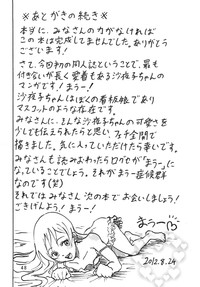 ※あとがきの続き※
本当に、みなさんの力がなければ
この本は完成してませんでした。ありがとう
ございます!
さて、今回初の同人誌ということで、最も
付き合いが長く愛着もある沙夜子ちゃんの
マンガです!まうー!
沙夜子ちゃんはぼくの看板娘であり
マスコットのような存在です。
みなさんに、そんな沙夜子ちゃんの可愛さを
少しでも伝えられたらと思い、フェチ全開で
描きました。気に入っていただけたら幸いです。
みなさんも読みおわったらログセが「まうー」に
なっていることでしょう。それがまうー症候群
なのです(笑)
それではみなさん次の本でお会いしましょう!
ごきげんよう!まうー!
まうー
2012.8.24